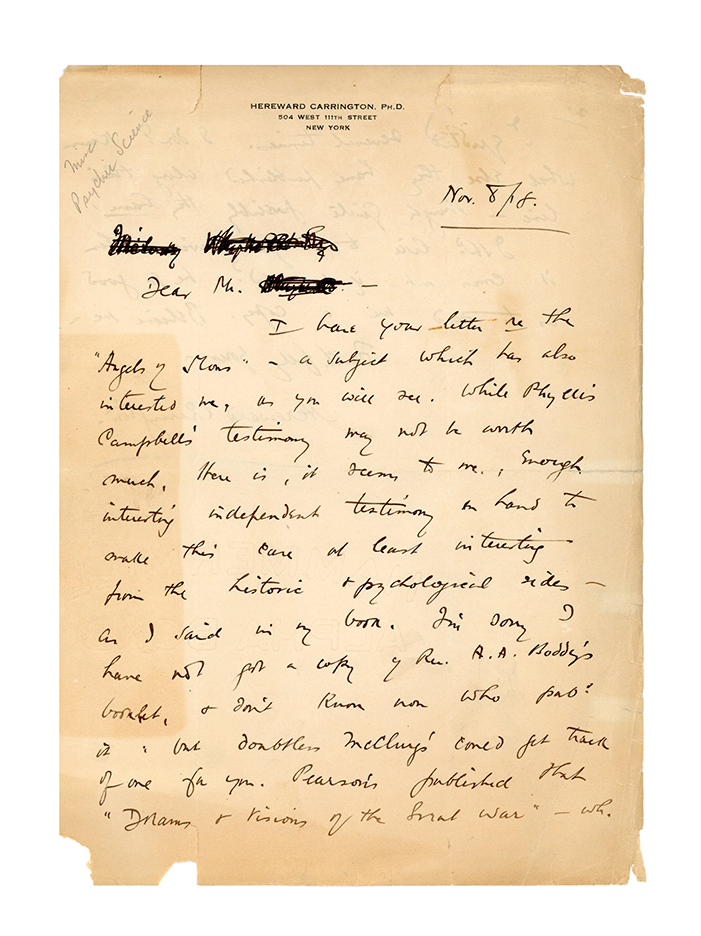 HEREWARD CARRINGTON, PH.D.
504 WEST 111TH STREET
NEW YORK
Misc
Psychic Science
Nov. 8/18.
Dear Mr. —
I have your letter re the
"Angels of Mons" — a subject which has also
interested me, as you will see. While Phyllis
Campbell's testimony may not be worth
much, there is, it seems to me, enough
interesting independent testimony on hand to
make this case at least interesting
from the historic & psychological sides —
as I said in my book. I'm sorry I
have not got a copy of Rev. A.A. Boddy's
booklet, & don't know now who pubd
it, but doubtless McClurg's could get track
of one for you. Pearson's published that
"Dreams & Visions of the Great War" — wh.